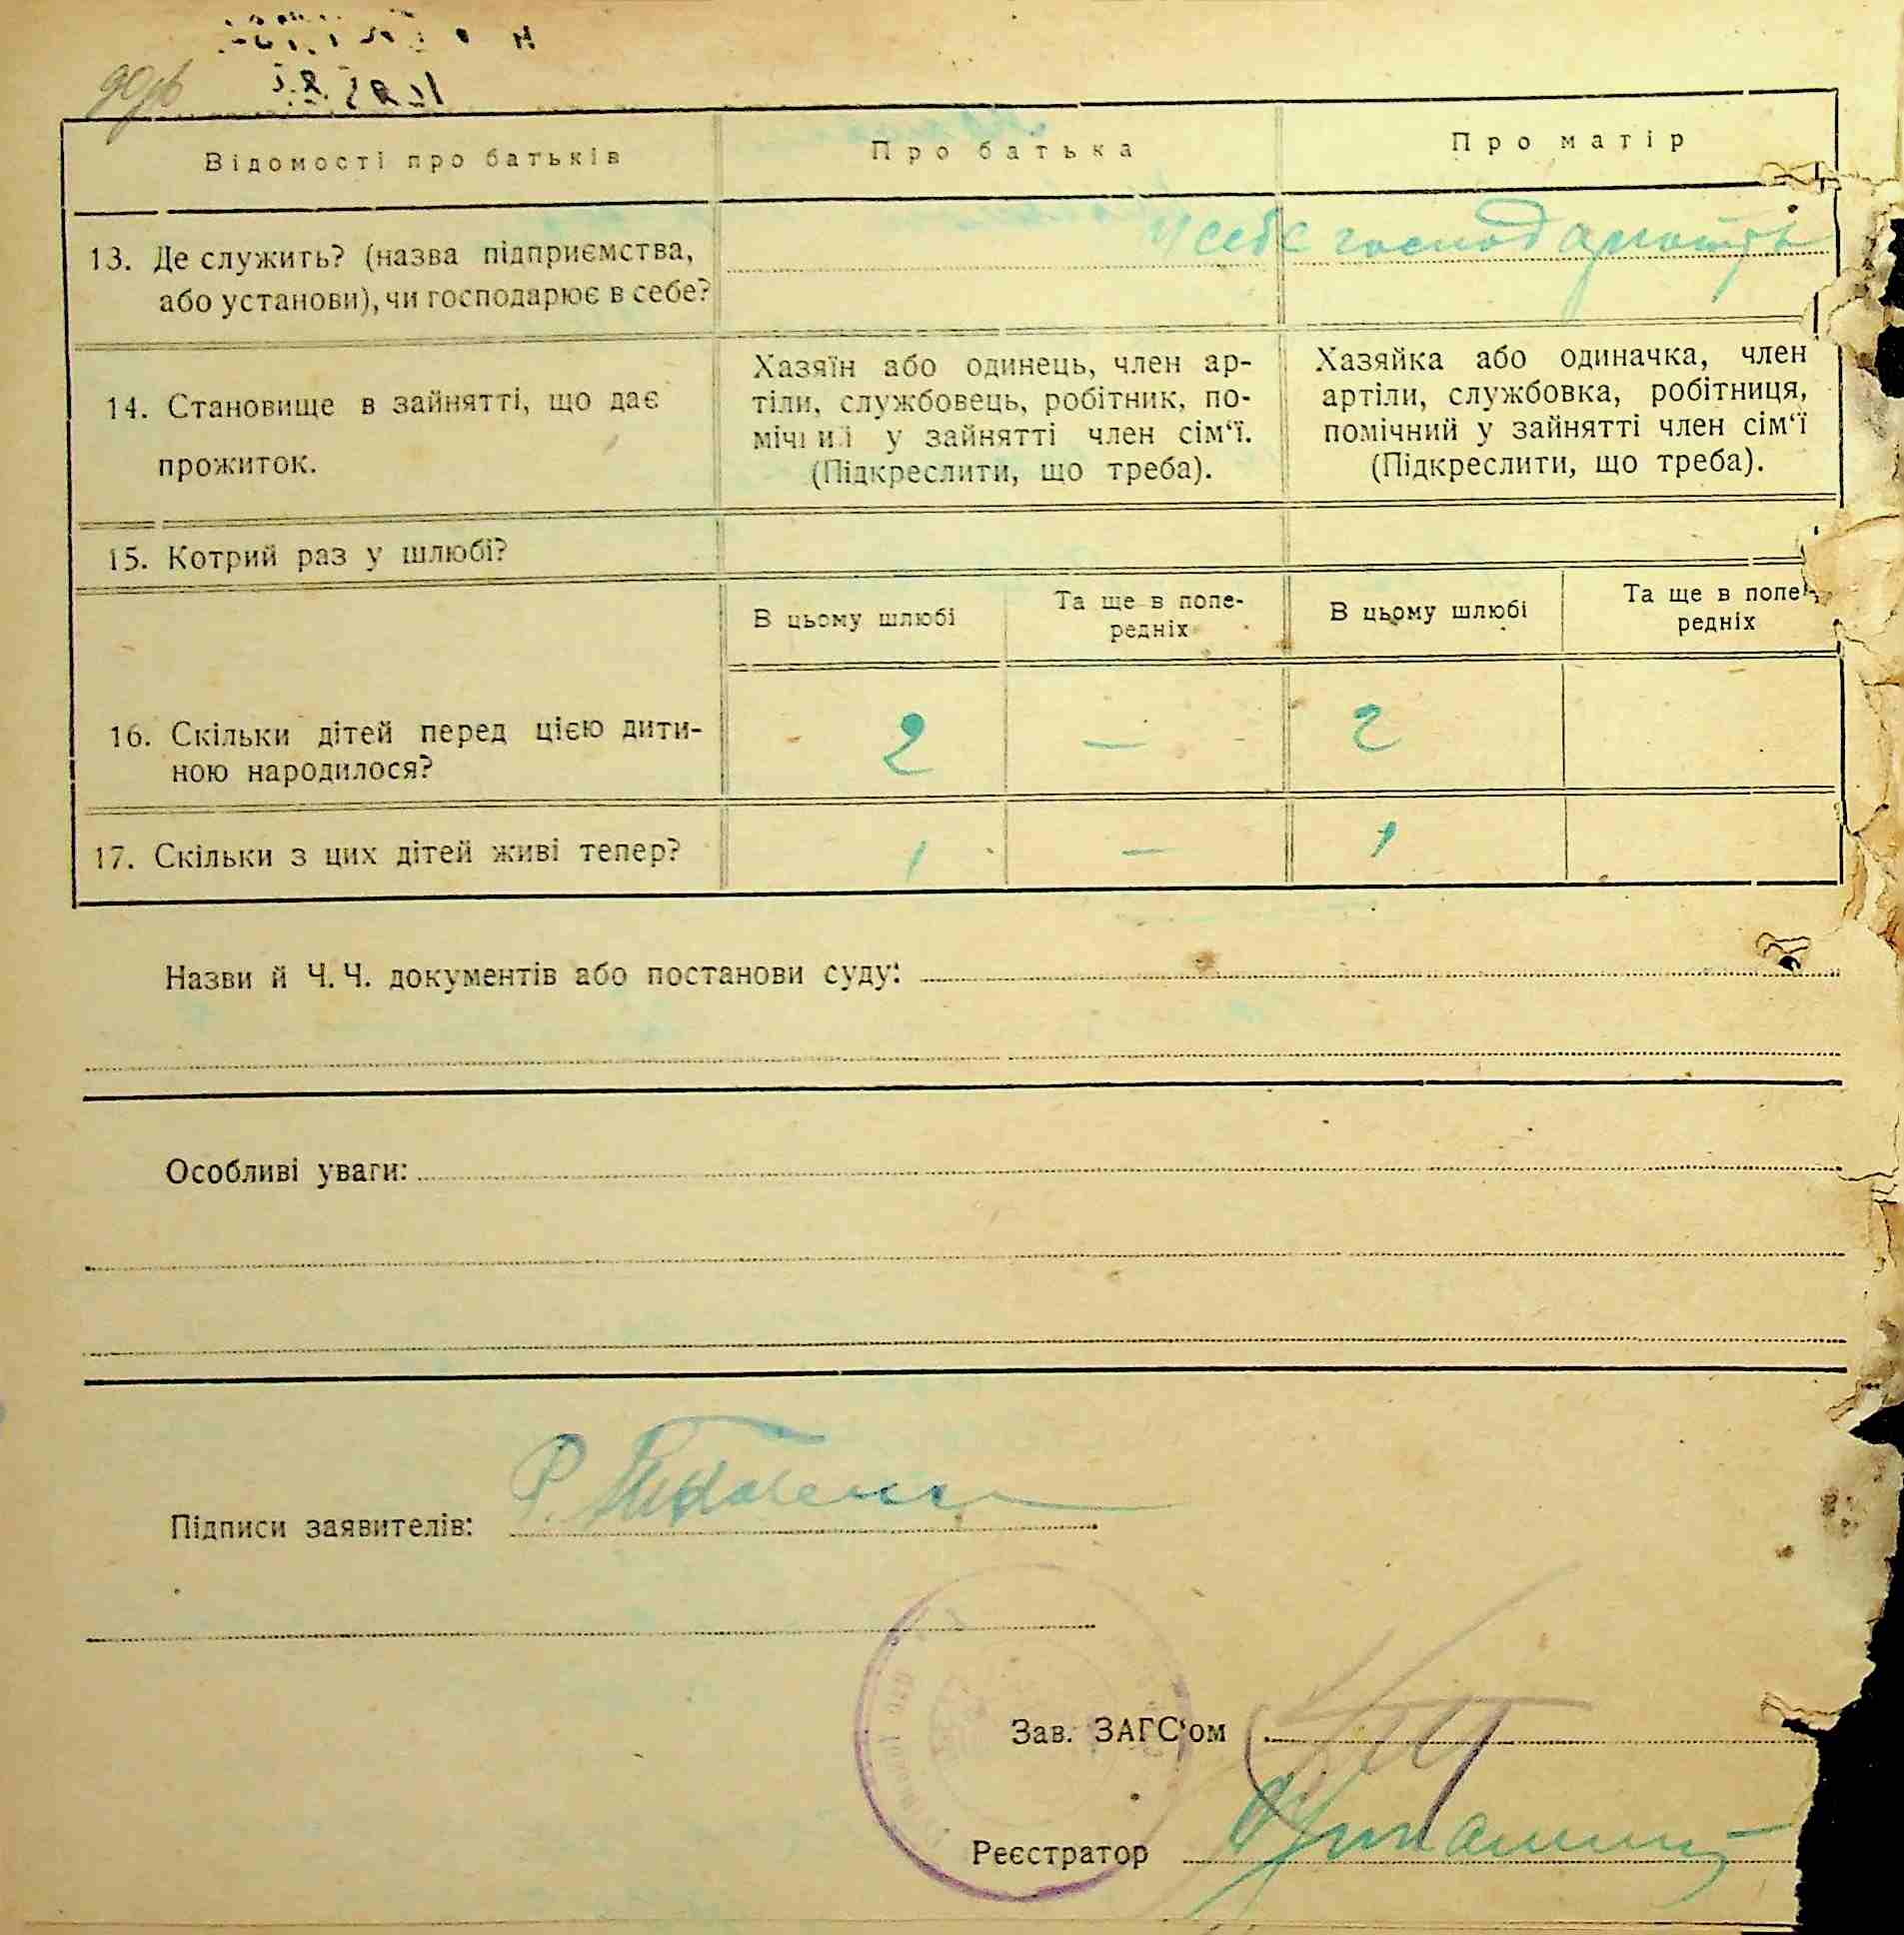 Відомості про батьків
Про батька
Про матір
13. Де служить? (назва підприємства,
або установи), чи господарює в себе?
у себе господарюють
14. Становище в зайнятті, що дає
прожиток.
Хазяїн або одинець, член ар-
тіли, службовець, робітник, по-
мічний у зайнятті член сім‘ї.
(Підкреслити, що треба).
Хазяйка або одиначка, член
артіли, службовка, робітниця,
помічний у зайнятті член сім‘ї
(Підкреслити, що треба).
15. Котрий раз у шлюбі?
В цьому шлюбі
Та ще в попе-
редніх
В цьому шлюбі
Та ще в попе-
редніх
16. Скільки дітей перед цією дити-
ною народилося?
2 — 2
17. Скільки з цих дітей живі тепер?
1 — 1
Назви й Ч. Ч. документів або постанови суду:
Особливі уваги:
Підписи заявителів:
Зав. ЗАГС‘ом
Реєстратор